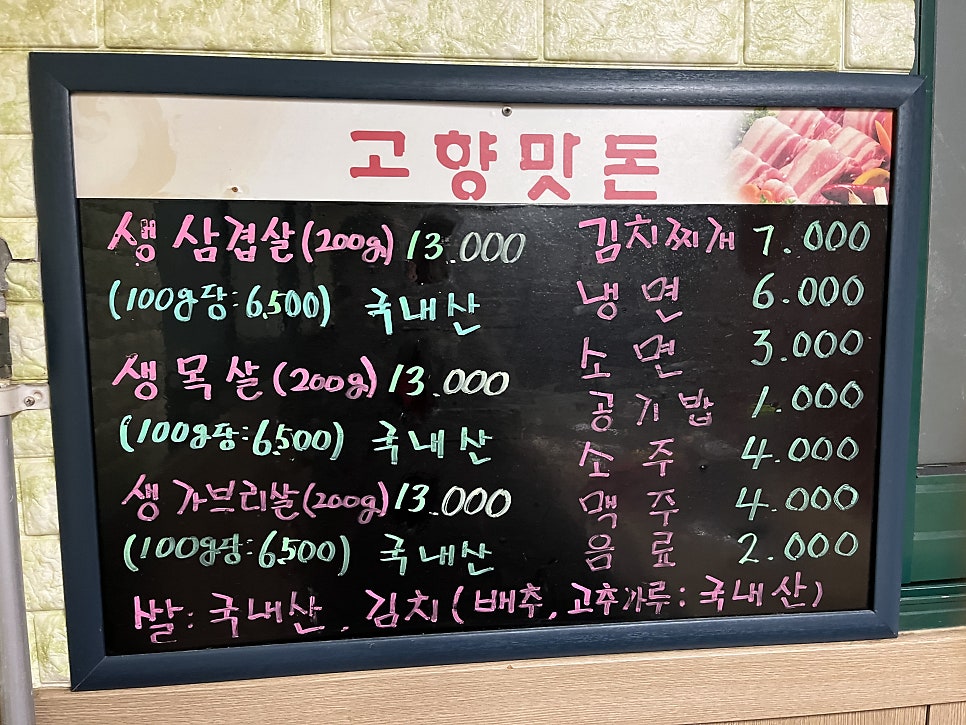 고향맛돈
생 삼겹살(200g) 13.000
(100g당:6.500) 국내산
생 목살(200g) 13.000
(100g당:6.500) 국내산
생 가브리살(200g) 13.000
(100g당:6.500) 국내산
김치찌개 7.000
냉면 6.000
소면 3.000
공기밥 1.000
소주 4.000
맥주 4.000
음료 2.000
쌀:국내산, 김치(배추, 고추가루:국내산)